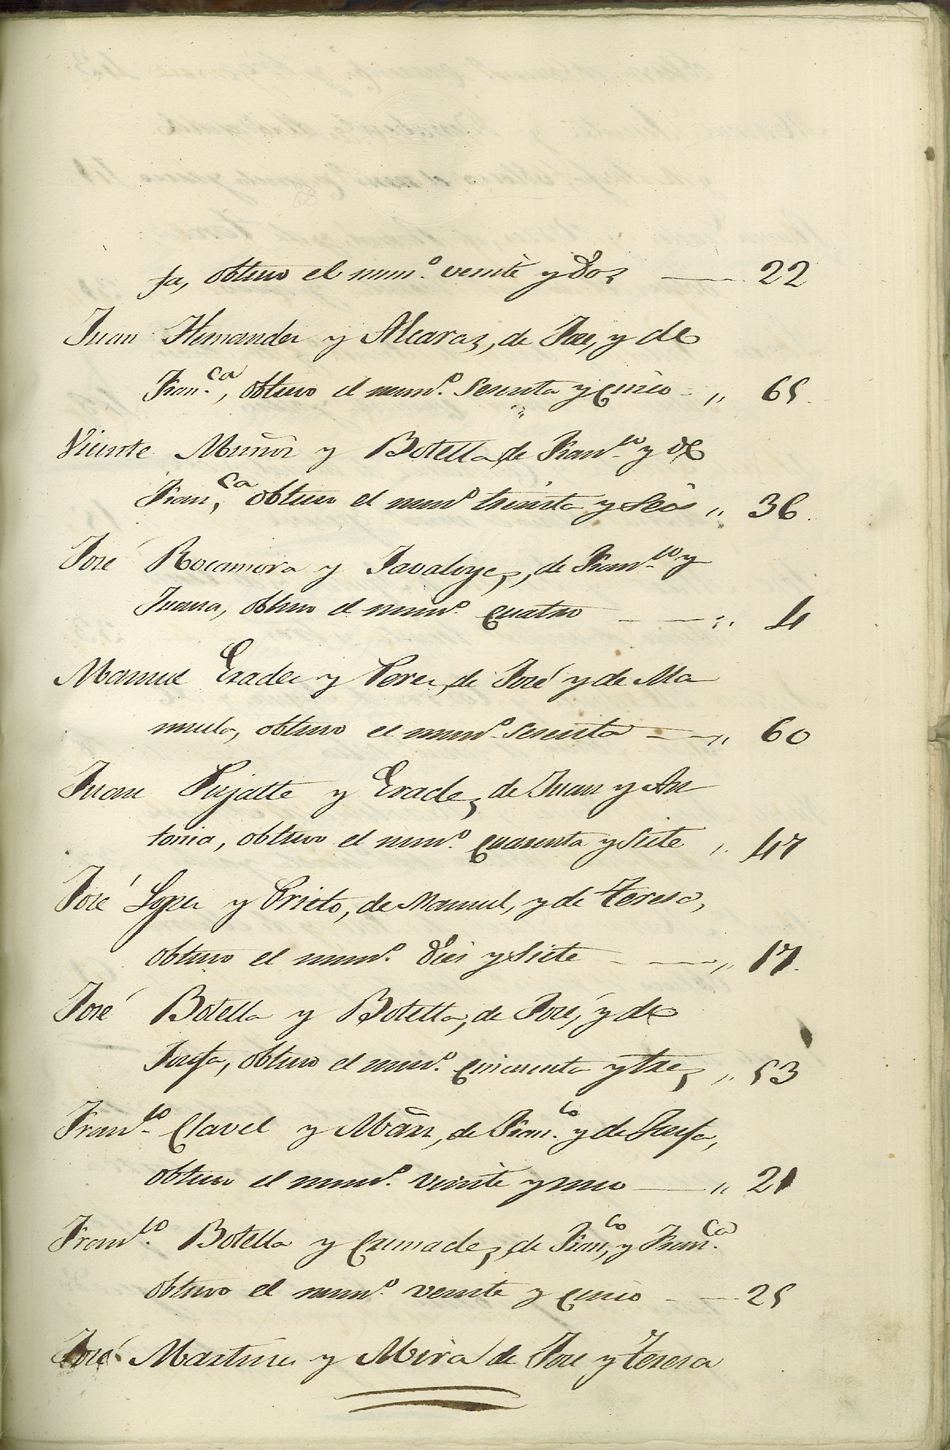 fa, obtuvo el num.º veinte y dos —— 22
Juan Hernandez y Alcaraz, de Jose, y de
Fran.ca, obtuvo el num.º sesenta y cinco - „ 65.
Vicente Muñoz y Botella de Fran.co y de
Fran.ca obtuvo el num.º treinta y seis „ 36.
José Rocamora y Javaloyes, de Fran.co y
Juana, obtuvo el num.º quatro - — „ 4
Manuel Erades y Perez, de José y de Ma
nuela, obtuvo el num.º sesenta — — „ 60
Juan Pujalte y Erades, de Juan y An
tonia, obtuvo el num.º quarenta y siete „ 47
José Lopez y Prieto, de Manuel, y de Teresa,
obtuvo el num.º dies y siete - —— „ 17.
José Botella y Botella, de José, y de
Josefa, obtuvo el num.º cincuenta y tres, „ 53
Fran.co Clavel y de Fran.co y de Josefa,
obtuvo el num.º veinte y uno —— „ 21
Fran.co Botella y Quesades, de Fran.co, y Fran.ca
obtuvo el num.º veinte y cinco - —— 25
José Martines y Mira de Jose y Teresa